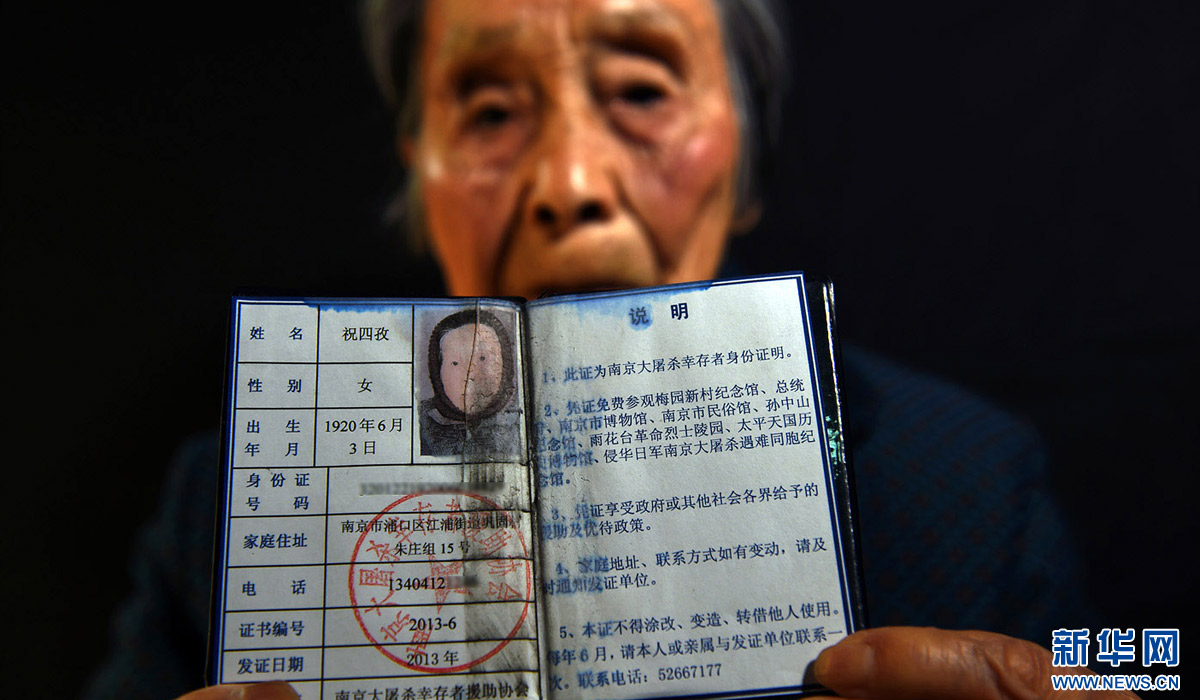 姓 名 祝四孜
性 别 女
出 生 年 月 1920 年 6 月 3 日
身 份 证 号 码
家庭住址 南京市浦口区江浦街道巩固
朱庄组 15 号
电 话 1340412
证书编号 2013-6
发证日期 2013 年
南京大屠杀幸存者援助协会
说 明
1、此证为南京大屠杀幸存者身份证明。
2、凭证免费参观梅园新村纪念馆、总统
、南京市博物馆、南京市民俗馆、孙中山
纪念馆、雨花台革命烈士陵园、太平天国历
史博物馆、侵华日军南京大屠杀遇难同胞纪
念馆。
3、凭证享受政府或其他社会各界给予的
援助及优待政策。
4、家庭地址、联系方式如有变动，请及
时通知发证单位。
5、本证不得涂改、变造、转借他人使用。
每年 6 月，请本人或亲属与发证单位联系一
次。联系电话：52667177
新华网
WWW.NEWS.CN